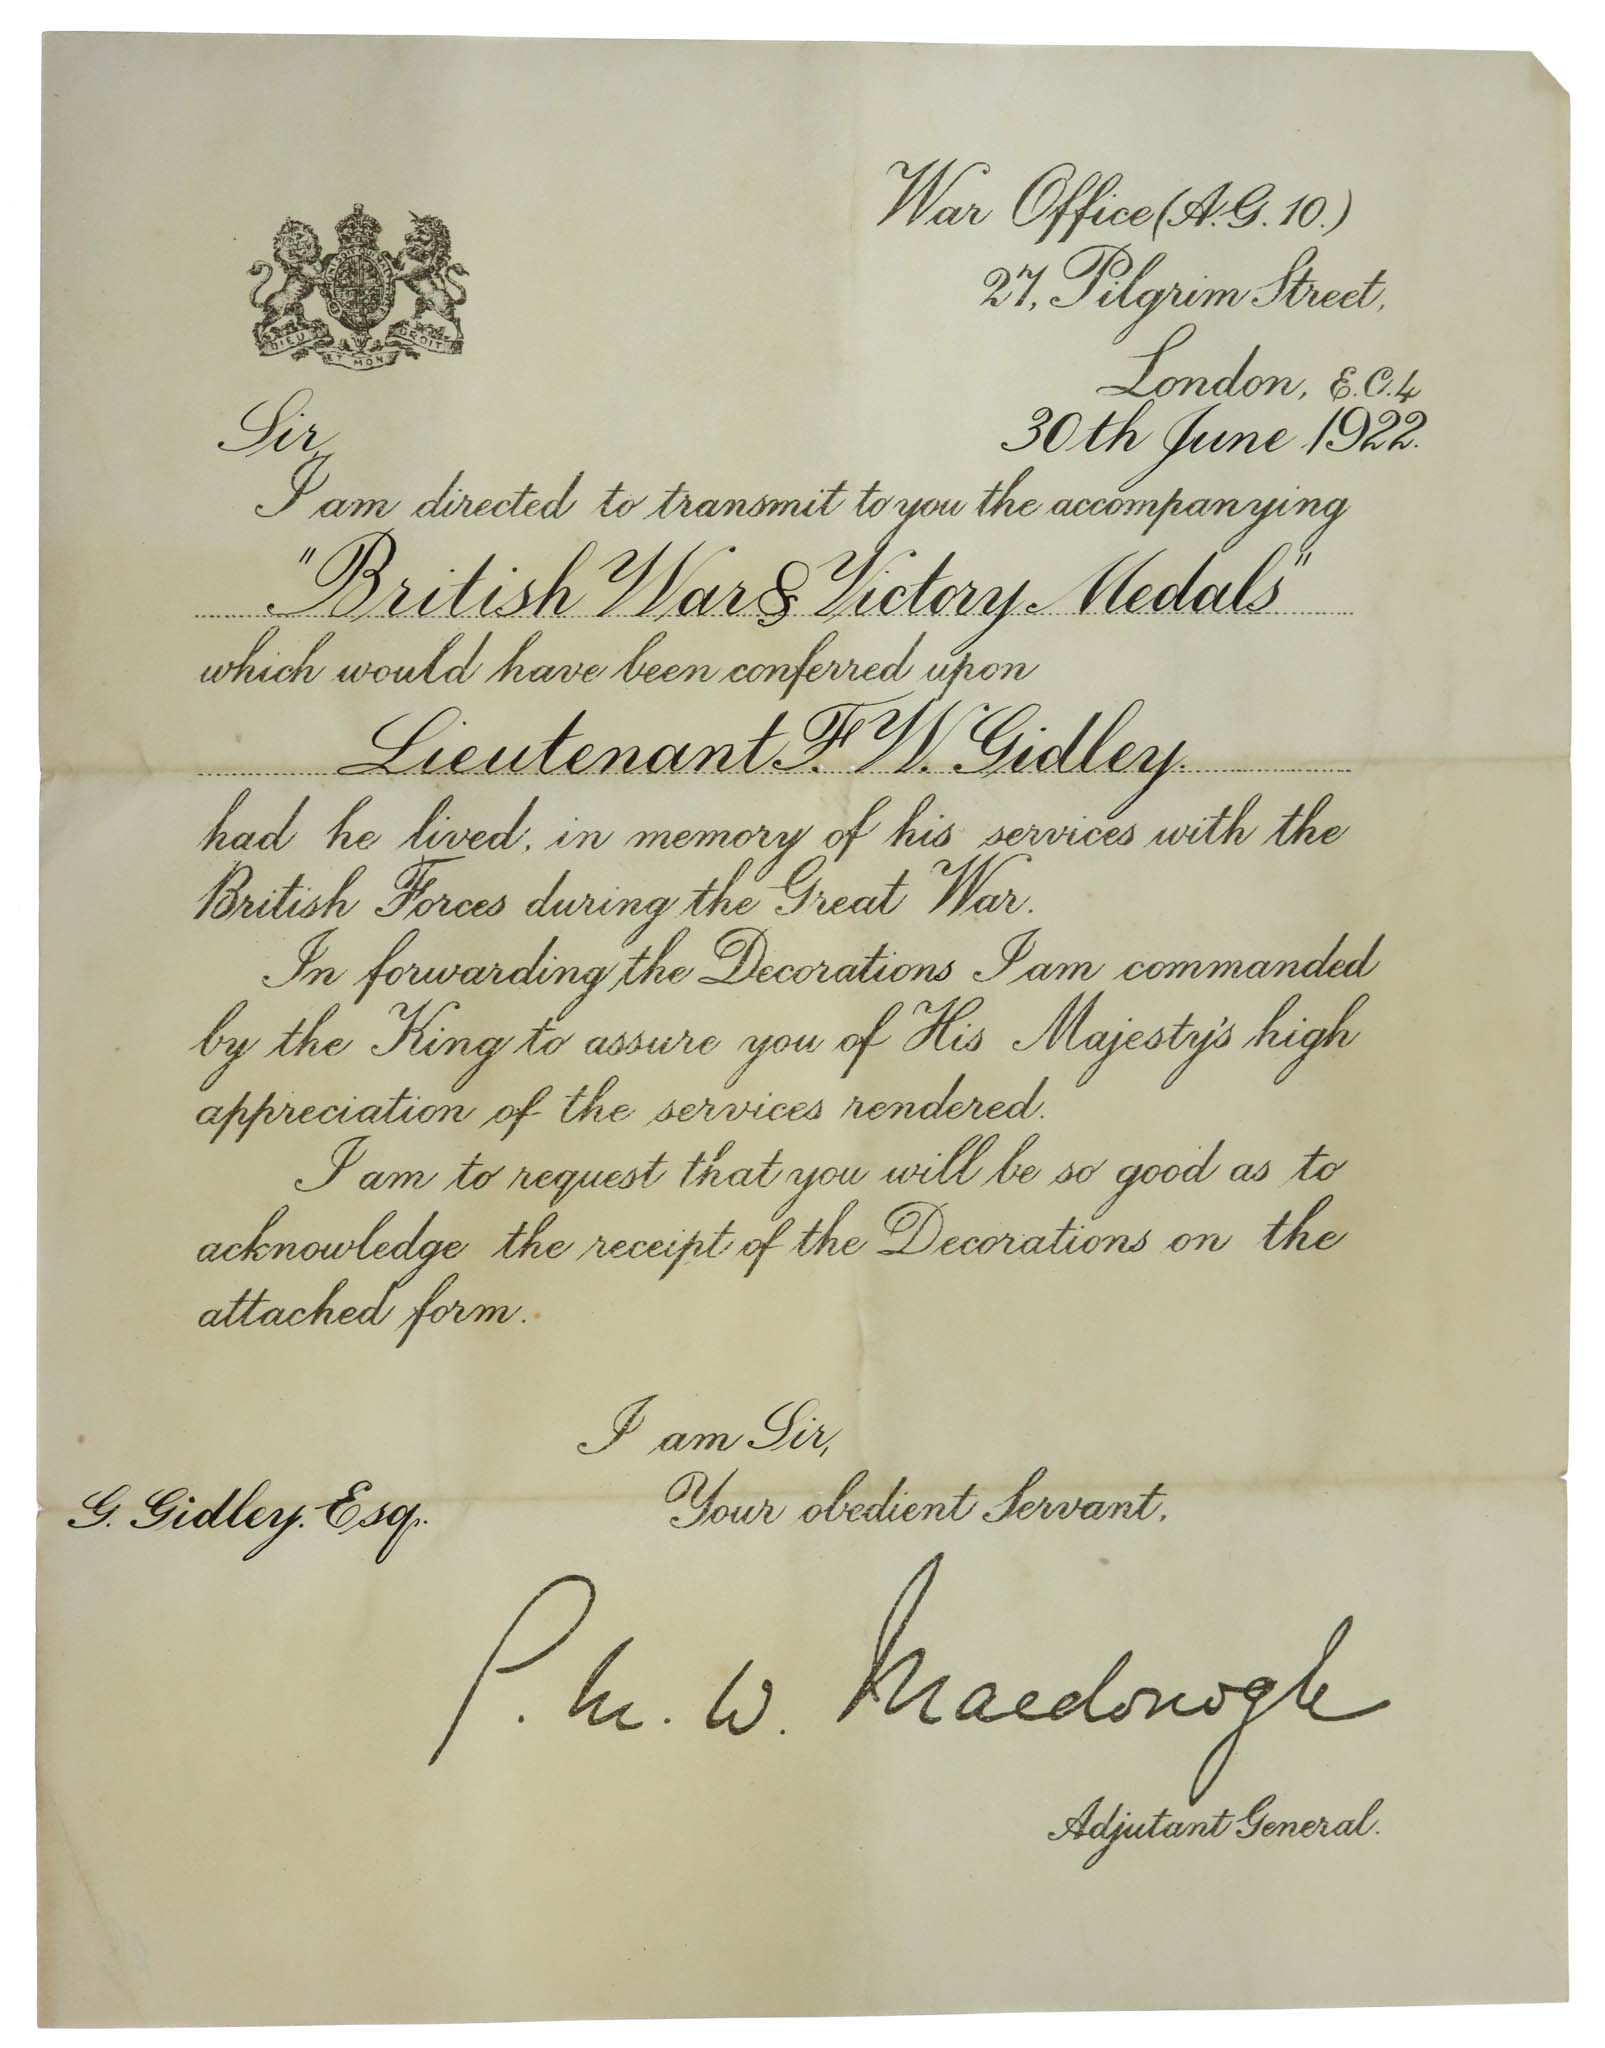 War Office (A.G. 10.)
27, Pilgrim Street,
London, E.C.4
30th June 1922.
DIEU ET MON DROIT
Sir,
I am directed to transmit to you the accompanying
"British War & Victory Medals"
which would have been conferred upon
Lieutenant F. W. Gidley.
had he lived, in memory of his services with the
British Forces during the Great War.
In forwarding the Decorations I am commanded
by the King to assure you of His Majesty's high
appreciation of the services rendered.
I am to request that you will be so good as to
acknowledge the receipt of the Decorations on the
attached form.
I am Sir,
Your obedient Servant,
G. Gidley. Esq.
P. M. W. Macdonogh
Adjutant General.